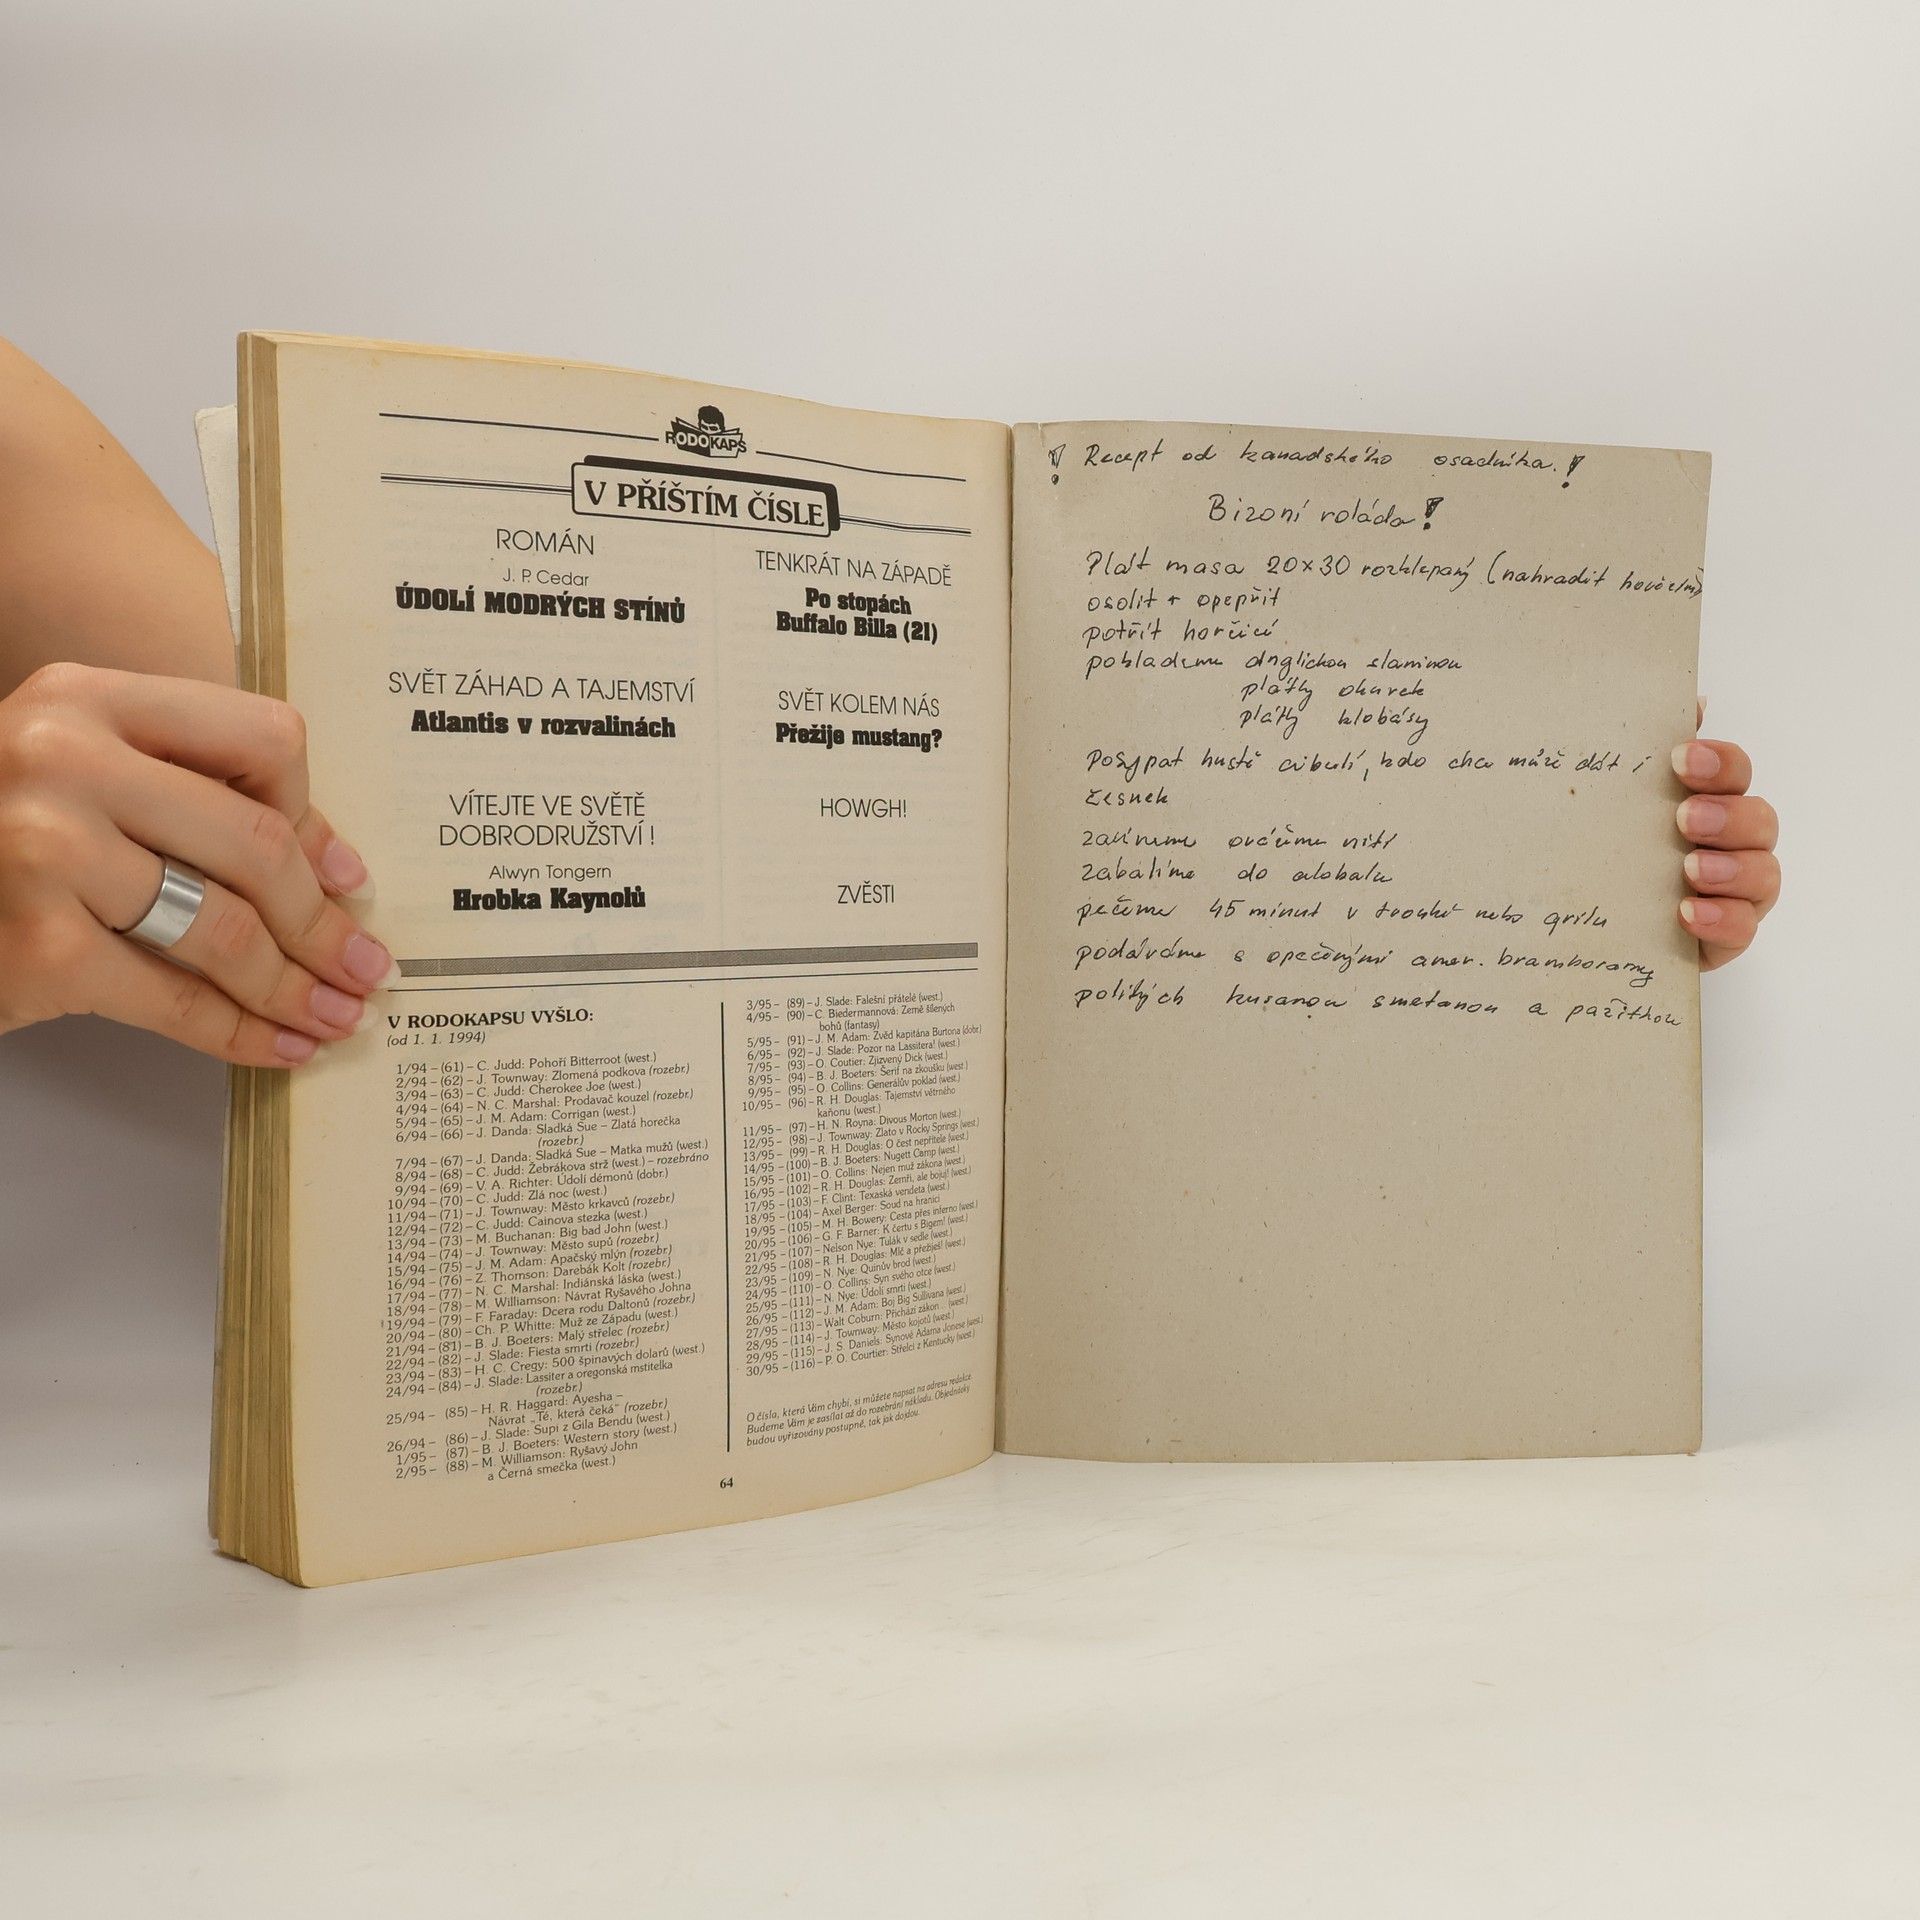 RODOKAPS
V PŘÍŠTÍM ČÍSLE
ROMÁN
J. P. Cedar
ÚDOLÍ MODRÝCH STÍNŮ
SVĚT ZÁHAD A TAJEMSTVÍ
Atlantis v rozvalinách
VÍTEJTE VE SVĚTĚ
DOBRODRUŽSTVÍ !
Alwyn Tongern
Hrobka Kaynolů
TENKRÁT NA ZÁPADĚ
Po stopách
Buffalo Billa (21)
SVĚT KOLEM NÁS
Přežije mustang?
HOWGH!
ZVĚSTI
V RODOKAPSU VYŠLO:
(od 1. 1. 1994)
1/94 – (61) – C. Judd: Pohoří Bitterroot (west.)
2/94 – (62) – J. Townway: Zlomená podkova (rozebr.)
3/94 – (63) – C. Judd: Cherokee Joe (west.)
4/94 – (64) – N. C. Marshal: Prodavač kouzel (rozebr.)
5/94 – (65) – J. M. Adam: Corrigan (west.)
6/94 – (66) – J. Danda: Sladká Sue – Zlatá horečka
(rozebr.)
7/94 – (67) – J. Danda: Sladká Sue – Matka mužů (west.)
8/94 – (68) – C. Judd: Žebrákova strž (west.) – rozebráno
9/94 – (69) – V. A. Richter: Údolí démonů (dobr.)
10/94 – (70) – C. Judd: Zlá noc (west.)
11/94 – (71) – J. Townway: Město krkavců (rozebr.)
12/94 – (72) – C. Judd: Cainova stezka (west.)
13/94 – (73) – M. Buchanan: Big bad John (west.)
14/94 – (74) – J. Townway: Město supů (rozebr.)
15/94 – (75) – J. M. Adam: Apačský mlýn (rozebr.)
16/94 – (76) – Z. Thomson: Darebák Kolt (rozebr.)
17/94 – (77) – N. C. Marshal: Indiánská láska (west.)
18/94 – (78) – M. Williamson: Návrat Ryšavého Johna
19/94 – (79) – F. Faraday: Dcera rodu Daltonů (rozebr.)
20/94 – (80) – Ch. P. Whitte: Muž ze Západu (west.)
21/94 – (81) – B. J. Boeters: Malý střelec (rozebr.)
22/94 – (82) – J. Slade: Fiesta smrti (rozebr.)
23/94 – (83) – H. C. Cregy: 500 špinavých dolarů (west.)
24/94 – (84) – J. Slade: Lassiter a oregonská mstitelka
(rozebr.)
25/94 – (85) – H. R. Haggard: Ayesha –
Návrat „Té, která čeká“ (rozebr.)
26/94 – (86) – J. Slade: Supi z Gila Bendu (west.)
1/95 – (87) – B. J. Boeters: Western story (west.)
2/95 – (88) – M. Williamson: Ryšavý John
a Černá smečka (west.)
3/95 – (89) – J. Slade: Falešní přátelé (west.)
4/95 – (90) – C. Biedermannová: Země šílených
bohů (fantasy)
5/95 – (91) – J. M. Adam: Zvěd kapitána Burtona (dobr.)
6/95 – (92) – J. Slade: Pozor na Lassitera! (west.)
7/95 – (93) – O. Coutier: Zjizvený Dick (west.)
8/95 – (94) – B. J. Boeters: Šerif na zkoušku (west.)
9/95 – (95) – O. Collins: Generálův poklad (west.)
10/95 – (96) – R. H. Douglas: Tajemství větrného
kaňonu (west.)
11/95 – (97) – H. N. Royna: Divous Morton (west.)
12/95 – (98) – J. Townway: Zlato v Rocky Springs (west.)
13/95 – (99) – R. H. Douglas: O čest nepřítele (west.)
14/95 – (100) – B. J. Boeters: Nugett Camp (west.)
15/95 – (101) – O. Collins: Nejen muž zákona (west.)
16/95 – (102) – R. H. Douglas: Zemři, ale bojuj! (west.)
17/95 – (103) – F. Clint: Texaská vendeta (west.)
18/95 – (104) – Axel Berger: Soud na hranici
19/95 – (105) – M. H. Bowery: Cesta přes inferno (west.)
20/95 – (106) – G. F. Barner: K čertu s Bigem! (west.)
21/95 – (107) – Nelson Nye: Tulák v sedle (west.)
22/95 – (108) – R. H. Douglas: Mlč a přežiješ! (west.)
23/95 – (109) – N. Nye: Quinův brod (west.)
24/95 – (110) – O. Collins: Syn svého otce (west.)
25/95 – (111) – N. Nye: Údolí smrti (west.)
26/95 – (112) – J. M. Adam: Boj Big Sullivana (west.)
27/95 – (113) – Walt Coburn: Přichází zákon... (west.)
28/95 – (114) – J. Townway: Město kojotů (west.)
29/95 – (115) – J. S. Daniels: Synové Adama Jonese (west.)
30/95 – (116) – P. O. Courtier: Střelci z Kentucky (west.)
O čísla, která Vám chybí, si můžete napsat na adresu redakce.
Budeme Vám je zasílat až do rozebrání nákladu. Objednávky
budou vyřizovány postupně, tak jak dojdou.
64
! Recept od kanadského osadníka. !
Bizoní roláda!
Plát masa 20x30 rozklepaný (nahradit hovězím)
osolit + opepřit
potřít hořčicí
pokladem anglickou slaninou
plátky okurek
plátky klobásy
Posypat hustě cibulí, kdo chce může dát i
česnek
zavineme ovážeme nití
zabalíme do alobalu
pečeme 45 minut v troubě nebo grilu
podáváme s opečenými amer. bramborami
politých kysanou smetanou a pažitkou